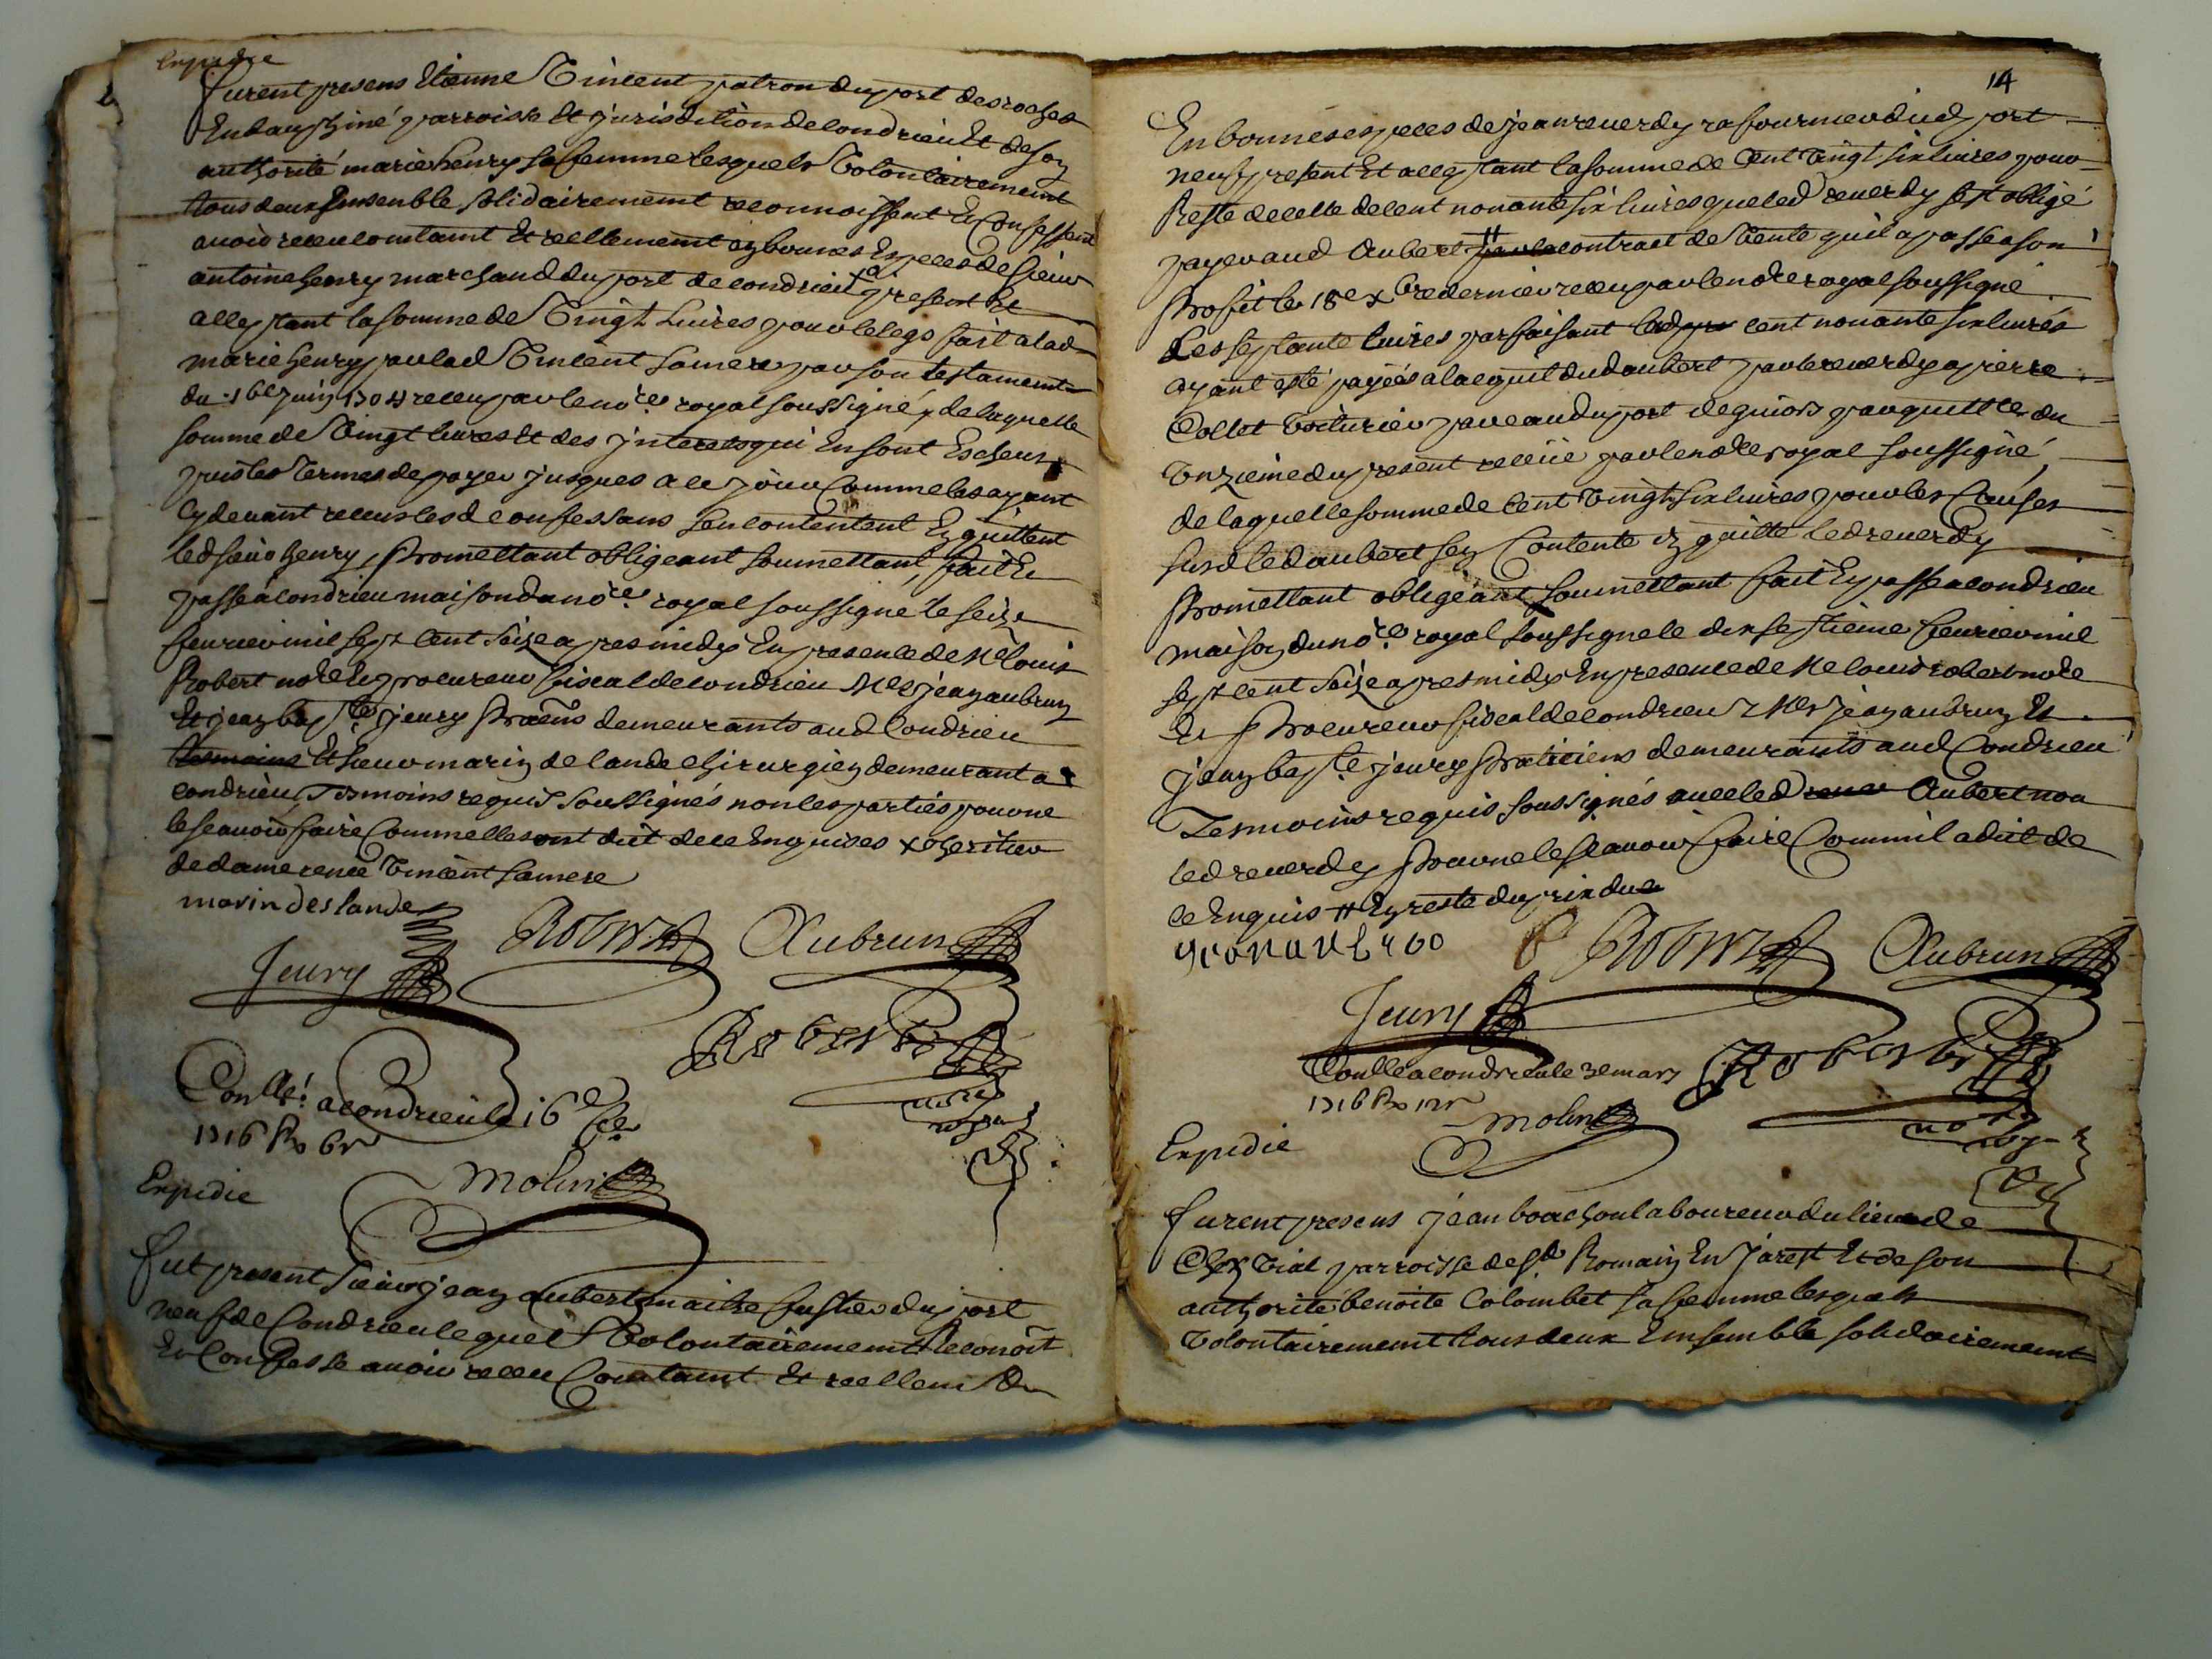 Expedie
furent presens Etienne Vincent patron du port des roches
En dauphiné parroisse et jurisdition de condrieu Et de son
authorité marie henry sa femme lesquels Volontairement
tous deux Ensemble solidairement reconnoissent Et Confessent
avoir receu comtamt Et reellement en bonnes Especes de sieur
antoine henry marchand du port de condrieu present Et
acceptant la somme de Vingt Livres pour le legs fait a lad
marie henry par lad Vincent sa mere par son testament
du 16e juin receu par le nore royal soussigné, de laquelle
somme de Vingt livres Et des jnterests qui En sont Escheus
puis les termes de payer jusques a ce jour Comme les ayant
cy devant receus lesd confessans s'en contentent En quittent
led sieur henry, Promettant obligeant soumettant, fait Et
passé a condrieu maison du nore royal soussigné le seize
feuvrier mil sept cent seize apres midy En presence de Me Louis
Robert nore Et procureur fiscal de condrieu Mes jean aubrun
Et jean bapte jeury Praens demeurants aud Condrieu
tesmoins Et sieur marin de lande chirurgien demeurant a
condrieu Tesmoins requis soussignés non les parties pour ne
le scavoir faire Comme elles ont dit de ce Enquises x heritier
de dame renee Vincent sa mere
marin deslande
Jeury Robert Aubrun
Robert
Conllé a Condrieu le 16e fer
1716 Ro 6s
Molin
Expedie
fut present sieur jean aubert maitre fustier du port
neuf de Condrieu lequel Volontairement Reconoit
Et Confesse avoir receu Comtamt Et reellem
14
En bonnes especes de jean reverdy rafourneur dud port
neuf present Et acceptant la somme de Cent Vingt six livres pour
Reste de celle de cent nonante six livres que led reverdy s'est obligé
payer aud Aubert # par le contract de Vente qu'il a passé a son
Profit le 18e xbre dernier receu par le nore royal soussigné
Les septante livres parfaisant lad cent nonante six livres
ayant esté payées a l'acquit dud aubert par le reverdy a pierre
Collet Voiturier par eau du port de givors par quittce du
Unzieme du present receüe par le nore royal soussigné,
de laquelle somme de Cent Vingt six livres pour les Causes
susd led aubert s'en Contente En quitte led reverdy
Promettant obligeant soumettant fait Et passé a condrieu
maison du nore royal soussigné le dix septieme feuvrier mil
sept cent seize apres midy En presence de Me louis robert nore
Et Procureur fiscal de condrieu Mes jean aubrun Et
jean bapte jeury Praticiens demeurants aud Condrieu
Tesmoins requis soussignés avec led Aubert non
led reverdy Pour ne le scavoir faire Comme il a dit de
ce Enquis # En reste du prix du
Robert Aubrun
Jeury
Conllé a condrieu le 3e mars Robert
1716 Ro 12s
Molin
Expedie
furent presens jean bouchou laboureur du lieu de
Chez Vial parroisse de St Romain En Jarest Et de son
authorité benoite Colombet sa femme lesquels
Volontairement tous deux Ensemble solidairement